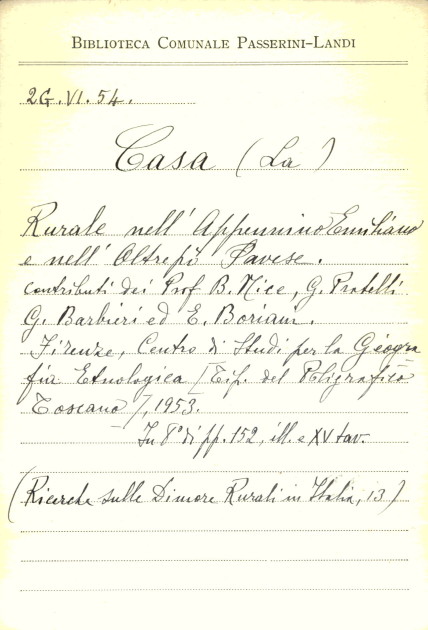 BIBLIOTECA COMUNALE PASSERINI-LANDI
2G.VI.54.
Casa (La)
Rurale nell'Appennino Emiliano
e nell'Oltrepò Pavese.
contributi dei Prof B. Nice, G. Pratelli
G. Barbieri ed E. Boriani.
Firenze, Centro di Studi per la Geogra
fia Etnologica /Tip. del Poligrafico
Toscano/, 1953.
In 8° di pp. 152, ill. e XV tav.
(Ricerche sulle Dimore Rurali in Italia, 13)